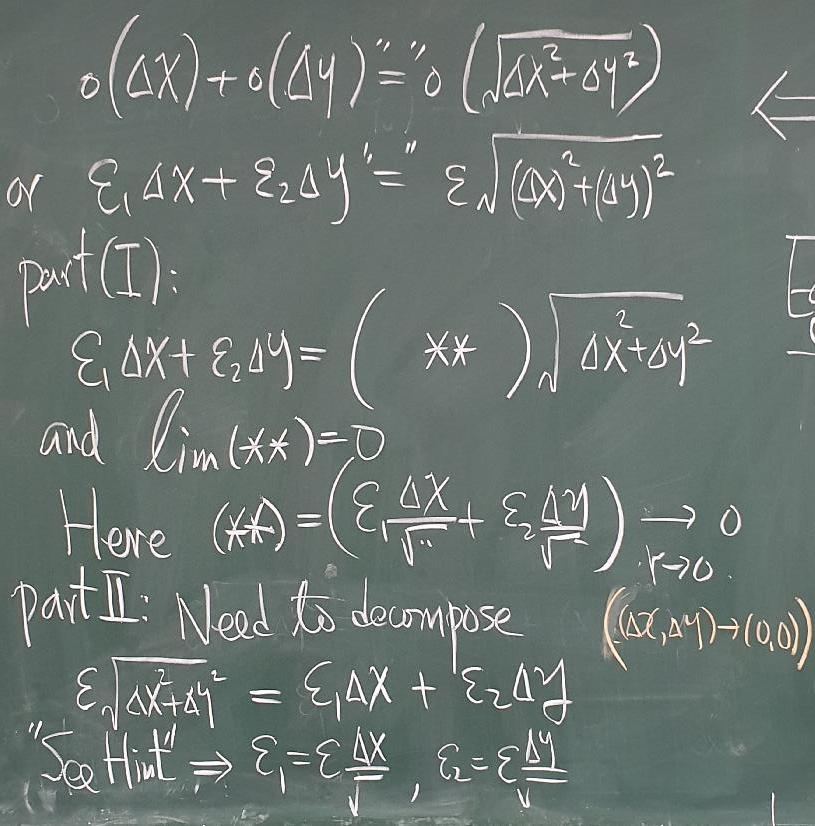 o(ΔX)+o(Δy)"="o(√ΔX²+Δy²)
or ε₁ΔX+ε₂Δy"="ε√(ΔX)²+(Δy)²
part(I):
ε₁ΔX+ε₂Δy=( ** )√ΔX²+Δy²
and lim(**)=0
Here (**)=(ε₁ΔX/√‥+ε₂Δy/√‥)→0
r→0.
part II: Need to decompose ((ΔX,Δy)→(0,0))
ε√ΔX²+Δy² = ε₁ΔX + ε₂Δy
"See Hint" ⇒ ε₁=εΔX/√ , ε₂=εΔy/√